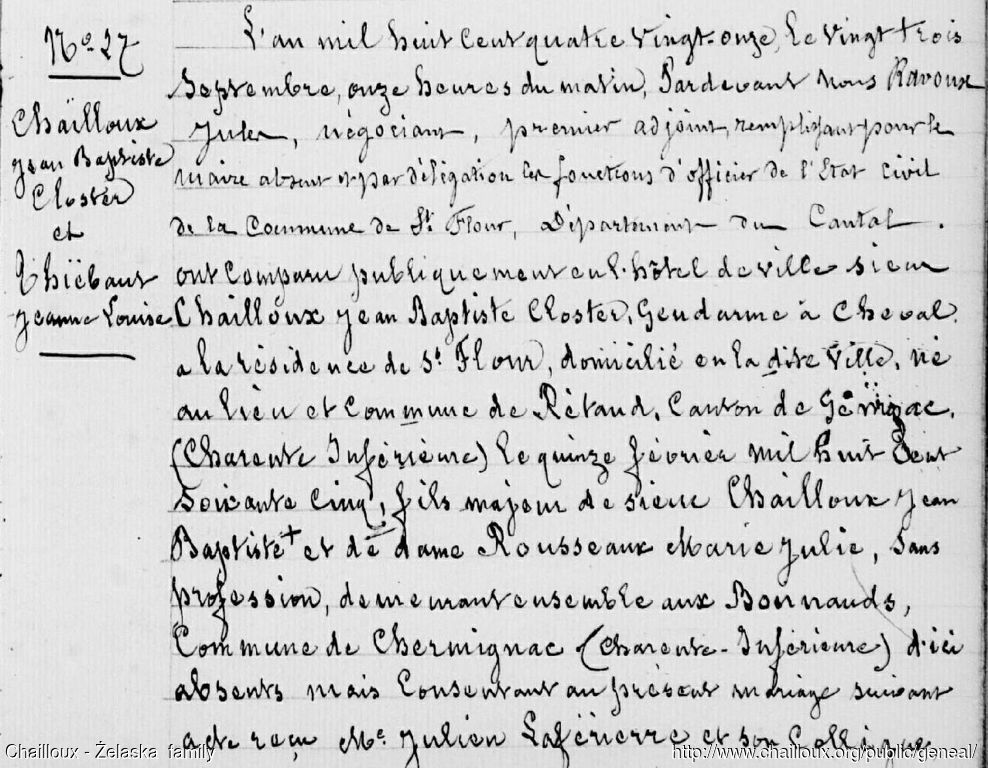 No 27
Chaïlloux
Jean Baptiste
Closter
et
Thiëbaut
Jeanne Louise
L'an mil huit cent quatre vingt-onze, le vingt trois
Septembre, onze heures du matin, Pardevant nous Ravoux
Jules, négociant, premier adjoint, remplissant pour le
maire absent et par délégation les fonctions d'officier de l'Etat civil
de la Commune de St Flour, Département du Cantal.
ont comparu publiquement en l'hôtel de ville sieur
Chailloux Jean Baptiste Closter, Gendarme à cheval.
a la résidence de St Flour, domicilié en la dite ville, né
au lieu et commune de Rétaud, Canton de
(Charente Inférieure) le quinze février mil huit Cent
soixante cinq, fils majeur de sieur Chailloux Jean
Baptiste + et de dame Rousseaux Marie Julie, sans
profession, demeurant ensemble aux Bonnauds,
Commune de Chermignac (Charente-Inférieure) d'ici
absents mais consentant au présent mariage suivant
acte reçu Me Julien Laférierre et son Collègue
Chailloux - Želaska family
http://www.chailloux.org/public/geneal/